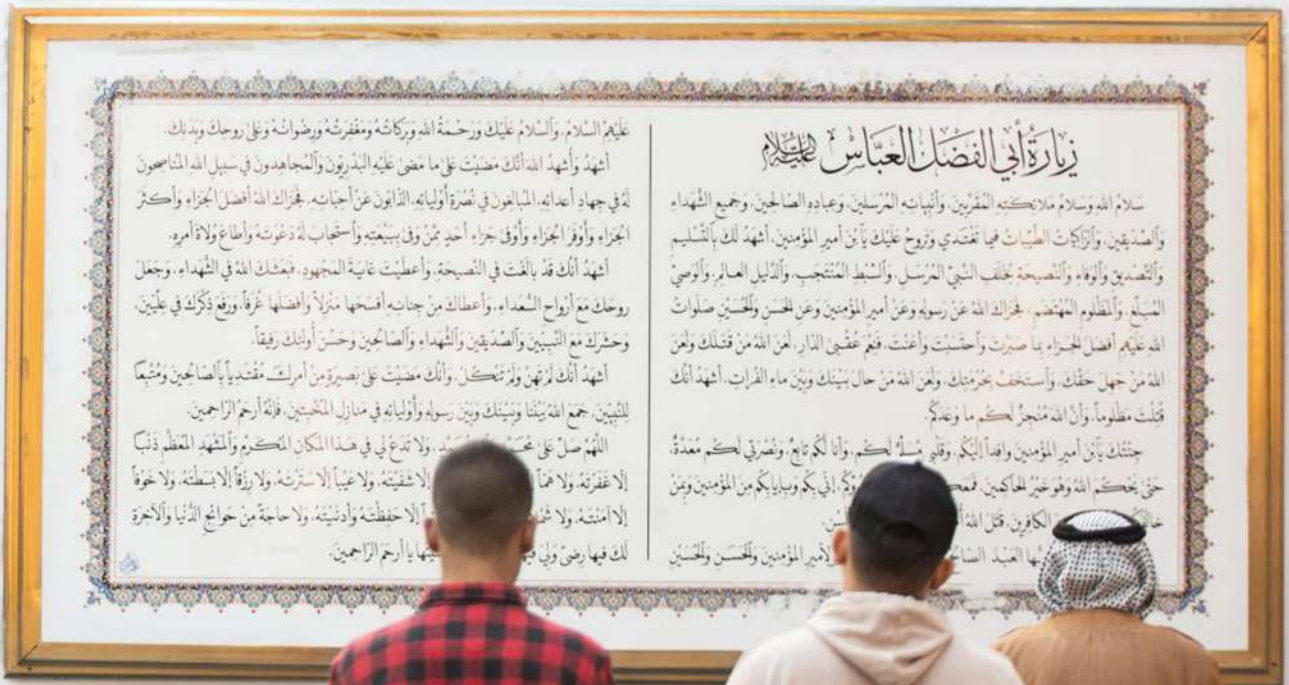 زيارة أبي الفضل العباس عليه السلام
سَلامُ اللهِ وَسَلامُ مَلائِكَتِهِ المُقَرَّبينَ، وَأَنْبِيائِهِ المُرْسَلينَ، وَعِبادِهِ الصّالِحينَ، وَجَميعِ الشُّهَداءِ
وَٱلصِّدّيقينَ، وَٱلزّاكِياتُ الطَّيِّباتُ فيما تَغْتَدي وَتَروحُ عَلَيْكَ يَا بْنَ أَميرِ المُؤْمِنينَ، أَشْهَدُ لَكَ بِٱلتَّسْليمِ
وَٱلتَّصْديقِ وَٱلْوَفاءِ وَٱلنَّصيحَةِ لِخَلَفِ النَّبِيِّ المُرْسَلِ، وَٱلسِّبْطِ المُنْتَجَبِ، وَٱلدَّليلِ العالِمِ، وَٱلْوَصِيِّ
المُبَلِّغِ، وَٱلْمَظْلومِ المُهْتَضَمِ، فَجَزاكَ اللهُ عَنْ رَسولِهِ وَعَنْ أَميرِ المُؤْمِنينَ وَعَنِ الحَسَنِ وَٱلْحُسَيْنِ صَلَواتُ
اللهِ عَلَيْهِم أَفْضَلَ الجَزاءِ بِما صَبَرْتَ وَٱحْتَسَبْتَ وَأَعَنْتَ، فَنِعْمَ عُقْبَى الدّارِ، لَعَنَ اللهُ مَنْ قَتَلَكَ وَلَعَنَ
اللهُ مَنْ جَهِلَ حَقَّكَ، وَٱسْتَخَفَّ بِحُرْمَتِكَ، وَلَعَنَ اللهُ مَنْ حالَ بَيْنَكَ وَبَيْنَ ماءِ الفُراتِ، أَشْهَدُ أَنَّكَ
قُتِلْتَ مَظْلوماً، وَأَنَّ اللهَ مُنْجِزٌ لَكُم ما وَعَدَكُم.
جِئْتُكَ يَا بْنَ أَميرِ المُؤْمِنينَ وافِداً إِلَيْكُم، وَقَلْبي مُسَلِّمٌ لَكُم، وَأَنا لَكُم تابِعٌ، وَنُصْرَتي لَكُم مُعَدَّةٌ،
حَتّىٰ يَحْكُمَ اللهُ وَهُوَ خَيْرُ الحاكِمينَ، إِنّي بِكُم وَبِإِيابِكُم مِنَ المُؤْمِنينَ وَبِمَنْ
الكافِرينَ، قَتَلَ اللهُ
العَبْدُ الصّالِحُ لِأَميرِ المُؤْمِنينَ وَٱلْحَسَنِ وَٱلْحُسَيْنِ
عَلَيْهِمُ السَّلامُ، وَٱلسَّلامُ عَلَيْكَ وَرَحْمَةُ اللهِ وَبَرَكاتُهُ وَمَغْفِرَتُهُ وَرِضْوانُهُ وَعَلىٰ روحِكَ وَبَدَنِكَ.
أَشْهَدُ وَأُشْهِدُ اللهَ أَنَّكَ مَضَيْتَ عَلىٰ ما مَضىٰ عَلَيْهِ البَدْرِيّونَ وَٱلْمُجاهِدونَ في سَبيلِ اللهِ المُناصِحونَ
لَهُ في جِهادِ أَعْدائِهِ، المُبالِغونَ في نُصْرَةِ أَوْلِيائِهِ، الذّابّونَ عَنْ أَحِبّائِهِ، فَجَزاكَ اللهُ أَفْضَلَ الجَزاءِ وَأَكْثَرَ
الجَزاءِ وَأَوْفَرَ الجَزاءِ وَأَوْفىٰ جَزاءِ أَحَدٍ مِمَّنْ وَفىٰ بِبَيْعَتِهِ وَٱسْتَجابَ لَهُ دَعْوَتَهُ وَأَطاعَ وُلاةَ أَمْرِهِ.
أَشْهَدُ أَنَّكَ قَدْ بالَغْتَ في النَّصيحَةِ، وَأَعْطَيْتَ غايَةَ المَجْهودِ، فَبَعَثَكَ اللهُ في الشُّهَداءِ، وَجَعَلَ
روحَكَ مَعَ أَرْواحِ السُّعَداءِ، وَأَعْطاكَ مِنْ جِنانِهِ أَفْسَحَها مَنْزِلاً وَأَفْضَلَها غُرَفاً، وَرَفَعَ ذِكْرَكَ في عِلِّيّينَ،
وَحَشَرَكَ مَعَ النَّبِيّينَ وَٱلصِّدّيقينَ وَٱلشُّهَداءِ وَٱلصّالِحينَ وَحَسُنَ أُولئِكَ رَفيقاً.
أَشْهَدُ أَنَّكَ لَمْ تَهِنْ وَلَمْ تَنْكُلْ، وَأَنَّكَ مَضَيْتَ عَلىٰ بَصيرَةٍ مِنْ أَمْرِكَ، مُقْتَدِياً بِٱلصّالِحينَ وَمُتَّبِعاً
لِلنَّبِيّينَ، جَمَعَ اللهُ بَيْنَنا وَبَيْنَكَ وَبَيْنَ رَسولِهِ وَأَوْلِيائِهِ في مَنازِلِ المُخْبِتينَ، فَإِنَّهُ أَرْحَمُ الرّاحِمينَ.
اللّٰهُمَّ صَلِّ عَلىٰ وَلا تَدَعْ لي في هٰذا المَكانِ المُكَرَّمِ وَٱلْمَشْهَدِ المُعَظَّمِ ذَنْباً
إِلّا غَفَرْتَهُ، وَلا هَمّاً إِلّا شَفَيْتَهُ، وَلا عَيْباً إِلّا سَتَرْتَهُ، وَلا رِزْقاً إِلّا بَسَطْتَهُ، وَلا خَوْفاً
إِلّا آمَنْتَهُ، وَلا إِلّا حَفِظْتَهُ وَأَدْنَيْتَهُ، وَلا حاجَةً مِنْ حَوائِجِ الدُّنْيا وَٱلآخِرَةِ
لَكَ فيها رِضىً وَلِيَ يا أَرْحَمَ الرّاحِمينَ.